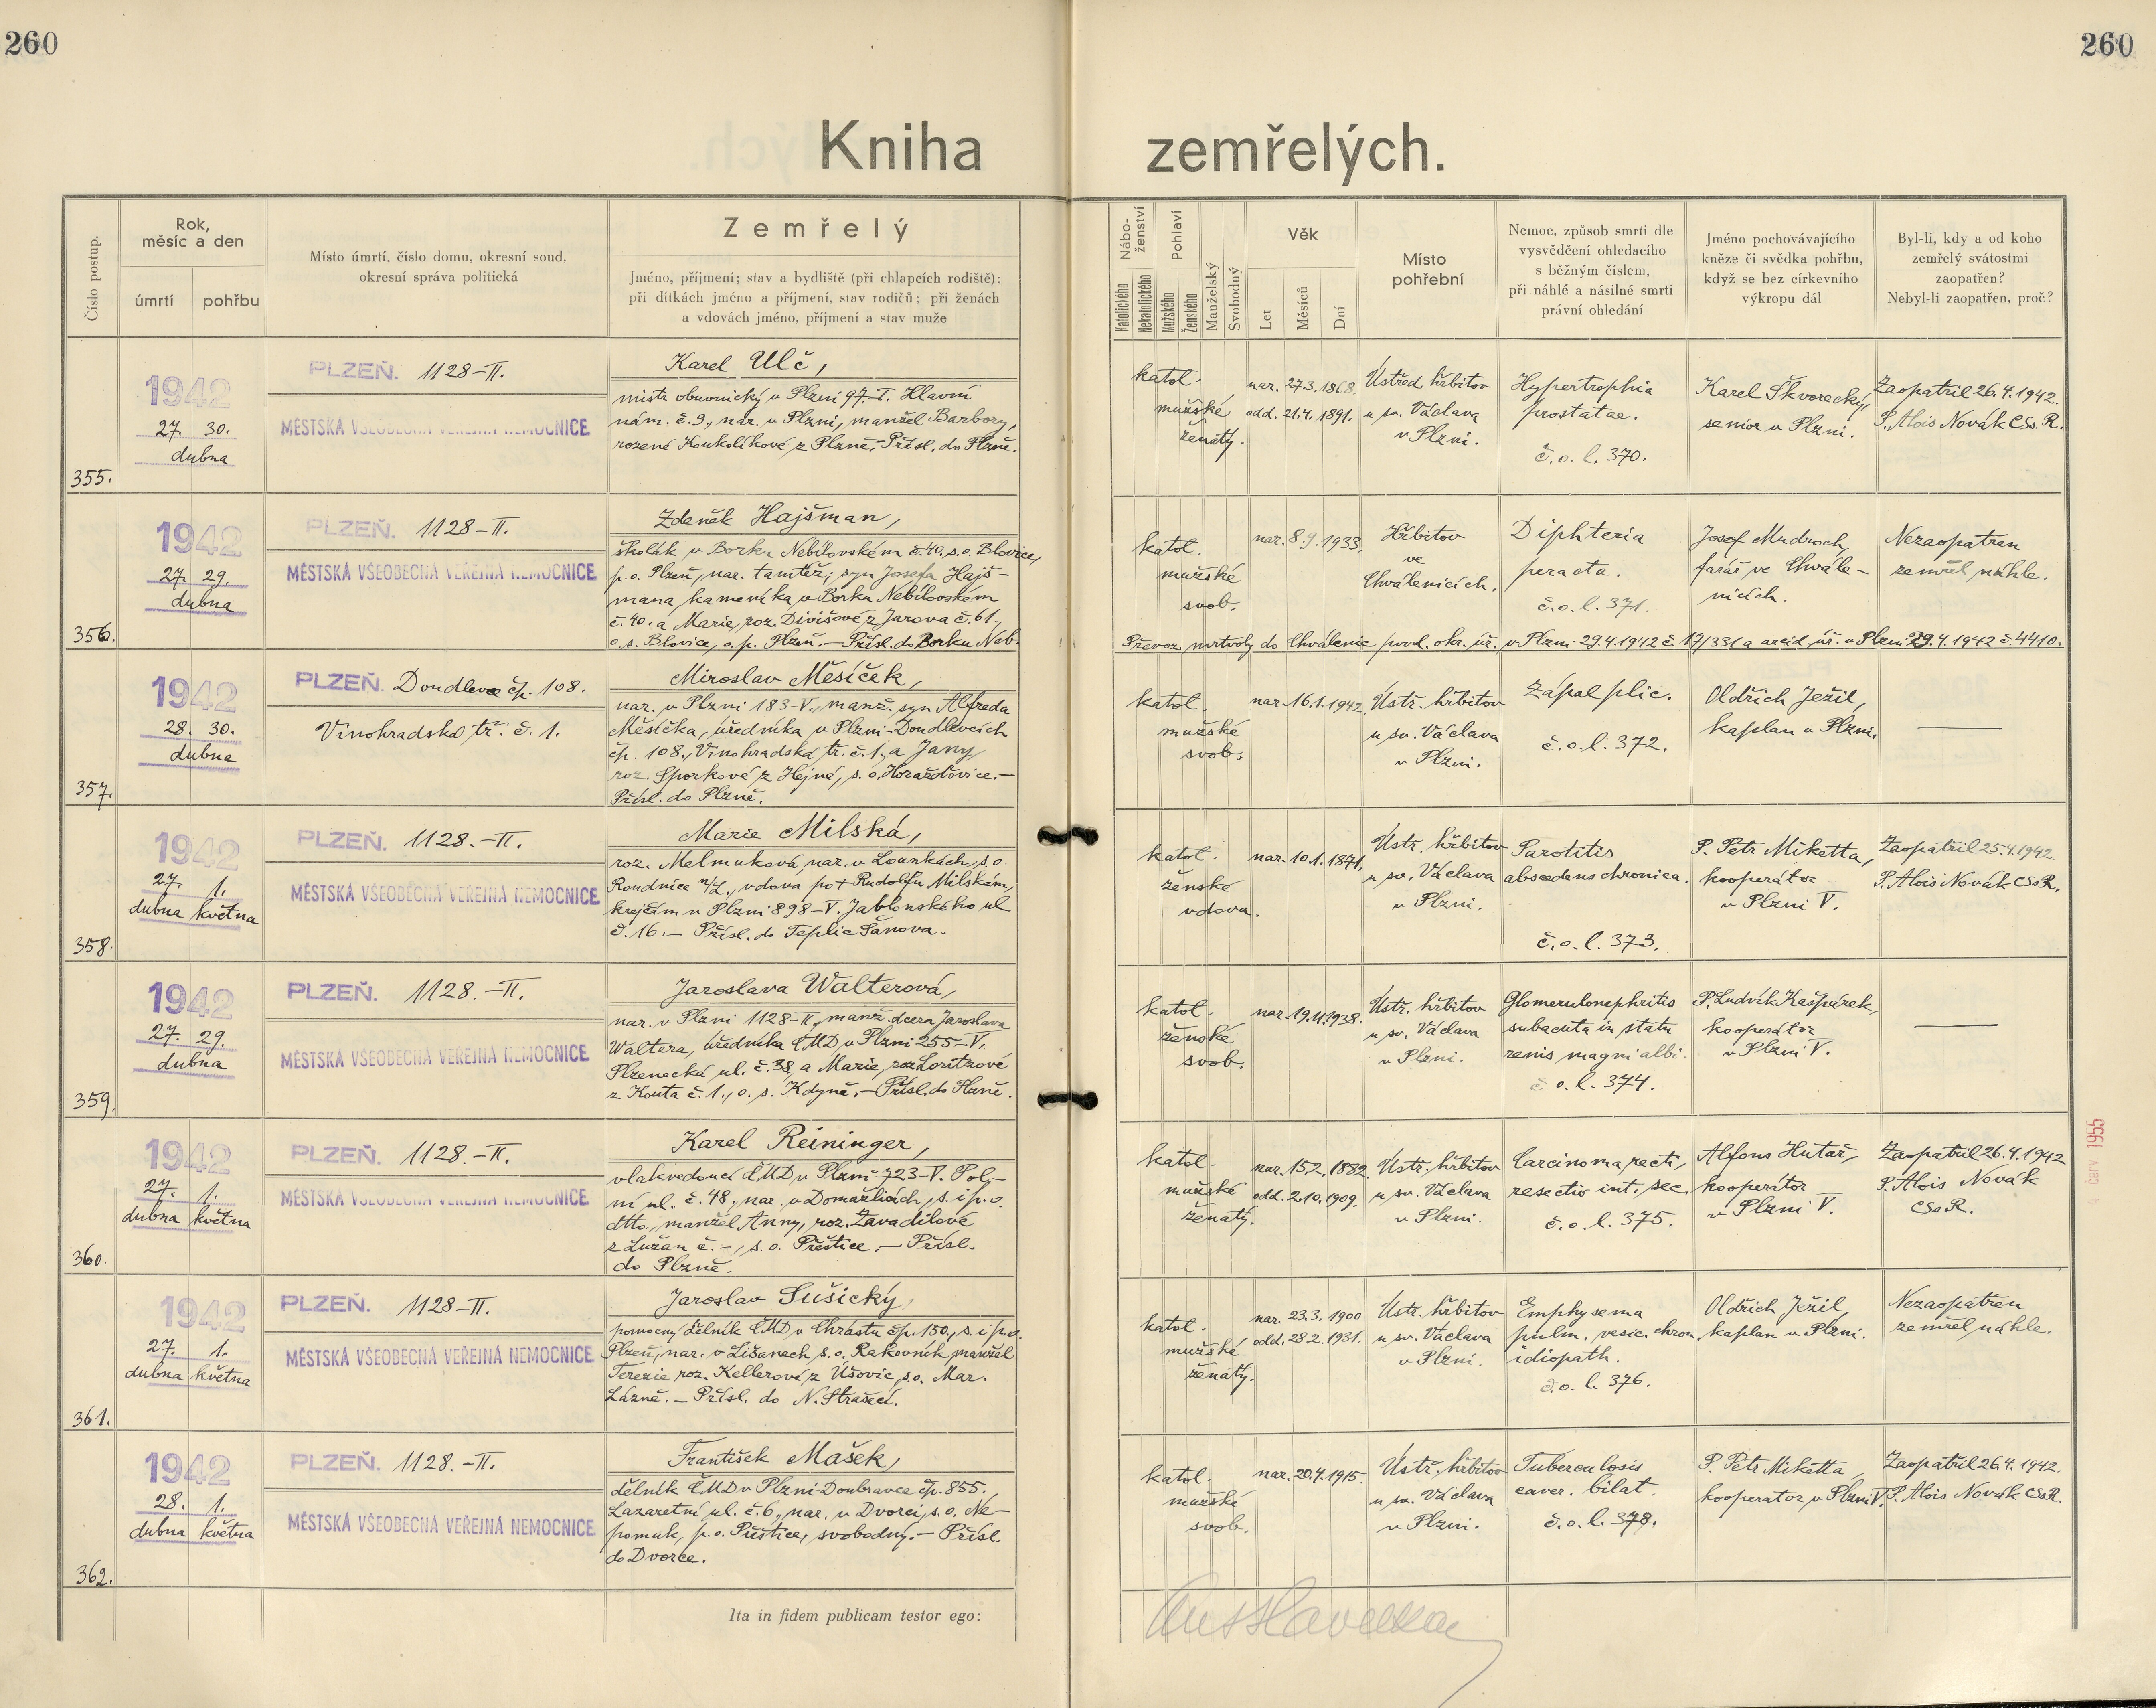 260
260
Kniha zemřelých.
Číslo postup.
Rok,
měsíc a den
úmrtí
pohřbu
Místo úmrtí, číslo domu, okresní soud,
okresní správa politická
Zemřelý
Jméno, příjmení; stav a bydliště (při chlapcích rodiště);
při dítkách jméno a příjmení, stav rodičů; při ženách
a vdovách jméno, příjmení a stav muže
Nábo-
ženství
Katolického
Nekatolického
Pohlaví
Mužského
Ženského
Manželský
Svobodný
Věk
Let
Měsíců
Dní
Místo
pohřební
Nemoc, způsob smrti dle
vysvědčení ohledacího
s běžným číslem,
při náhlé a násilné smrti
právní ohledání
Jméno pochovávajícího
kněze či svědka pohřbu,
když se bez církevního
výkropu dál
Byl-li, kdy a od koho
zemřelý svátostmi
zaopatřen?
Nebyl-li zaopatřen, proč?
355.
1942
27. 30.
dubna
PLZEŇ. 1128-II.
MĚSTSKÁ VŠEOBECNÁ VEŘEJNÁ NEMOCNICE
Karel Ulč,
mistr obuvnický v Plzni 97.-I. Hlavní
nám. č. 9., nar. v Plzni, manžel Barbory,
rozené Koukolíkové z Plzně. Přísl. do Plzně.
katol.
mužské
ženatý.
nar. 27.3.1868.
odd. 21.4.1891.
Ústřed. hřbitov
u sv. Václava
v Plzni.
Hypertrophia
prostatae.
č. o. l. 370.
Karel Škvorecký,
senior v Plzni.
Zaopatřil 26.4.1942.
P. Alois Novák CSs.R.
356.
1942
27. 29.
dubna
PLZEŇ. 1128-II.
MĚSTSKÁ VŠEOBECNÁ VEŘEJNÁ NEMOCNICE
Zdeněk Hajšman,
školák v Borku Nebílovském č. 40, s.o. Blovice,
p.o. Plzeň, nar. tamtéž; syn Josefa Hajš-
mana, kameníka v Borku Nebílovském
č. 40. a Marie, roz. Divišové z Jarova č. 61.,
o.s. Blovice, o.p. Plzeň. - Přísl. do Borku Neb.
katol.
mužské
svob.
nar. 8.9.1933.
Hřbitov
ve
Chválenicích.
Diphteria
peracta.
č. o. l. 371.
Josef Mudroch,
farář ve Chvále-
nicích.
Nezaopatřen
zemřel náhle.
Převoz mrtvoly do Chválenic povol. okr. úř. v Plzni 29.4.1942 č. 17/331 a arcid. úř. v Plzni 29.4.1942 č. 4410.
357.
1942
28. 30.
dubna
PLZEŇ. Doudlevce čp. 108.
Vinohradská tř. č. 1.
Miroslav Měsíček,
nar. v Plzni 183-V., manž. syn Alfreda
Měsíčka, úředníka v Plzni-Doudlevcích
čp. 108., Vinohradská tř. č. 1, a Jany,
roz. Sporkové z Hejné, s. o. Horažďovice. -
Přísl. do Plzně.
katol.
mužské
svob.
nar. 16.1.1942.
Ústř. hřbitov
u sv. Václava
v Plzni.
Zápal plic.
č. o. l. 372.
Oldřich Ježil,
kaplan v Plzni.
358.
1942
27. 1.
dubna května
PLZEŇ. 1128.-II.
MĚSTSKÁ VŠEOBECNÁ VEŘEJNÁ NEMOCNICE
Marie Milská,
roz. Melmuková, nar. v Lounkách, s.o.
Roudnice n/L., vdova po † Rudolfu Milském,
krejčím v Plzni 898-V. Jablonského ul
č. 16. - Přísl. do Teplic Šanova.
katol.
ženské
vdova.
nar. 10.1.1871.
Ústř. hřbitov
u sv. Václava
v Plzni.
Parotitis
abscedens chronica.
č. o. l. 373.
P. Petr Miketta,
kooperátor
v Plzni V.
Zaopatřil 25.4.1942.
P. Alois Novák CSsR.
359.
1942
27. 29.
dubna
PLZEŇ. 1128.-II.
MĚSTSKÁ VŠEOBECNÁ VEŘEJNÁ NEMOCNICE
Jaroslava Walterová,
nar. v Plzni 1128-II., manž. dcera Jaroslava
Waltera, úředníka ČMD v Plzni 255-V,
Plzenecká ul. č. 38, a Marie, roz. Loritzové
z Kouta č. 1., o. s. Kdyně. - Přísl. do Plzně.
katol.
ženské
svob.
nar. 19.11.1938.
Ústř. hřbitov
u sv. Václava
v Plzni.
Glomerulonephritis
subacuta in statu
renis magni albi.
č. o. l. 374.
P. Ludvík Kašpárek,
kooperátor
v Plzni V.
360.
1942
27. 1.
dubna května
PLZEŇ. 1128.-II.
MĚSTSKÁ VŠEOBECNÁ VEŘEJNÁ NEMOCNICE
Karel Reininger,
vlakvedoucí ČMD v Plzni-723-V. Pol-
ní ul. č. 48., nar. v Domažlicích, s. i p. o.
dtto., manžel Anny, roz. Zavadilové
z Lužan č. -, s. o. Přeštice. - Přísl.
do Plzně.
katol.
mužské
ženatý.
nar. 15.2.1882
odd. 2.10.1909.
Ústř. hřbitov
u sv. Václava
v Plzni.
Carcinoma recti,
resectio int. sec.
č. o. l. 375.
Alfons Hutař,
kooperátor
v Plzni V.
Zaopatřil 26.4.1942
P. Alois Novák
CSsR.
361.
1942
27. 1.
dubna května
PLZEŇ. 1128-II.
MĚSTSKÁ VŠEOBECNÁ VEŘEJNÁ NEMOCNICE
Jaroslav Sušický,
pomocný dělník ČMD v Chrástu čp. 150., s. i p. o.
Plzeň, nar. v Lišanech s. o. Rakovník, manžel
Terezie roz. Kellerové z Úšovic, s.o. Mar.
Lázně. - Přísl. do N. Strašecí.
katol.
mužské
ženatý.
nar. 23.3.1900
odd. 28.2.1931.
Ústř. hřbitov
u sv. Václava
v Plzni.
Emphysema
pulm. vesic. chron
idiopath.
č. o. l. 376.
Oldřich Ježil,
kaplan v Plzni.
Nezaopatřen
zemřel náhle.
362.
1942
28. 1.
dubna května
PLZEŇ. 1128.-II.
MĚSTSKÁ VŠEOBECNÁ VEŘEJNÁ NEMOCNICE
František Mašek,
dělník ČMD v Plzni-Doubravce čp. 855.,
Lazaretní ul. č. 6., nar. v Dvorci, s. o. Ne-
pomuk, p. o. Přeštice, svobodný. - Přísl.
do Dvorce.
katol.
mužské
svob.
nar. 20.4.1915.
Ústř. hřbitov
u sv. Václava
v Plzni.
Tuberculosis
caver. bilat.
č. o. l. 378.
P. Petr Miketta
kooperator v Plzni V.
Zaopatřil 26.4.1942.
P. Alois Novák CSsR.
Ita in fidem publicam testor ego:
1955